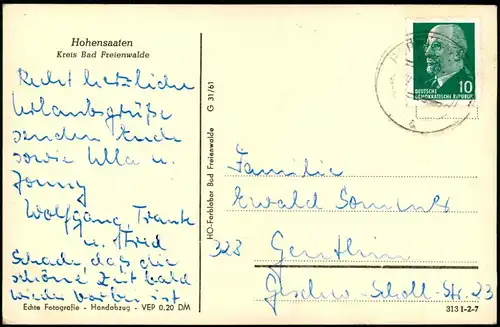 Hohensaaten
Kreis Bad Freienwalde
Recht herzliche
Urlaubsgrüße
senden Euch
sowie Ulla u.
Wolfgang,
u.
Schade daß die
schöne Zeit bald
wieder vorbei ist
Echte Fotografie - Handabzug - VEP 0,20 DM
HO-Farblabor Bad Freienwalde G 31/61
10
DEUTSCHE
DEMOKRATISCHE REPUBLIK
Familie
Ewald Sommer
328 Genthin
Geschw.-Scholl-Str. 23
313 1-2-7